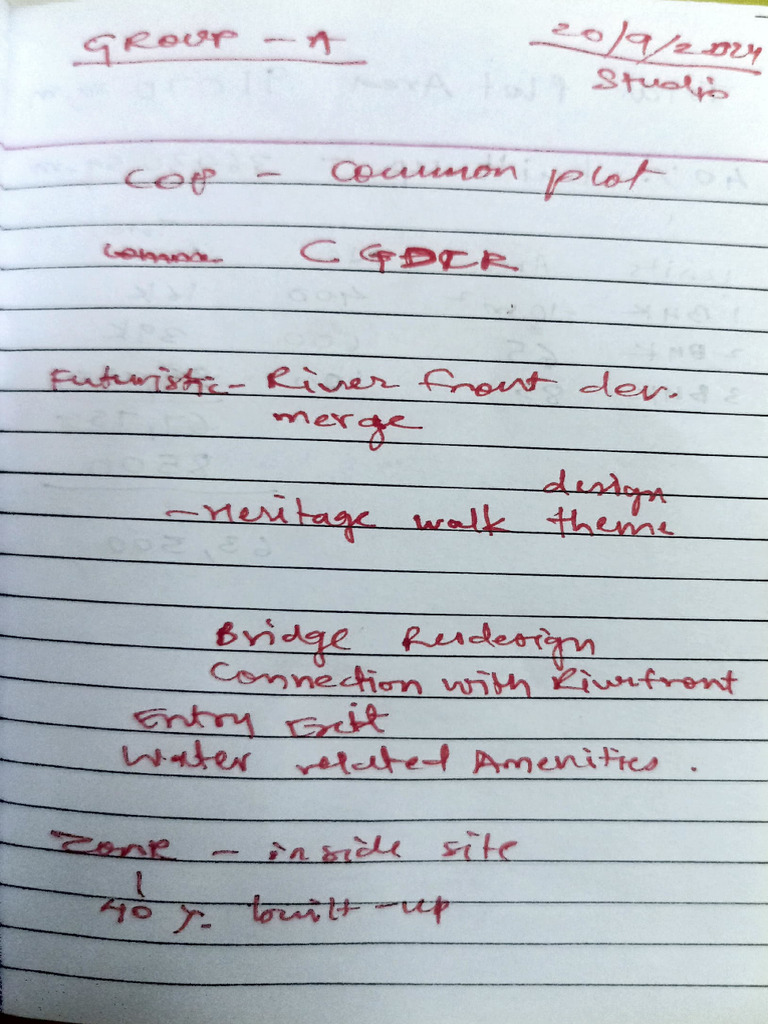 GROUP - A
20/9/2024
Studio
COP - Common plot
CGDCR
Futuristic - River front dev.
merge
design
- Heritage walk theme
Bridge Redesign
Connection with Riverfront
Entry Exit
Water related Amenities.
Zone - inside site
40 %. built-up